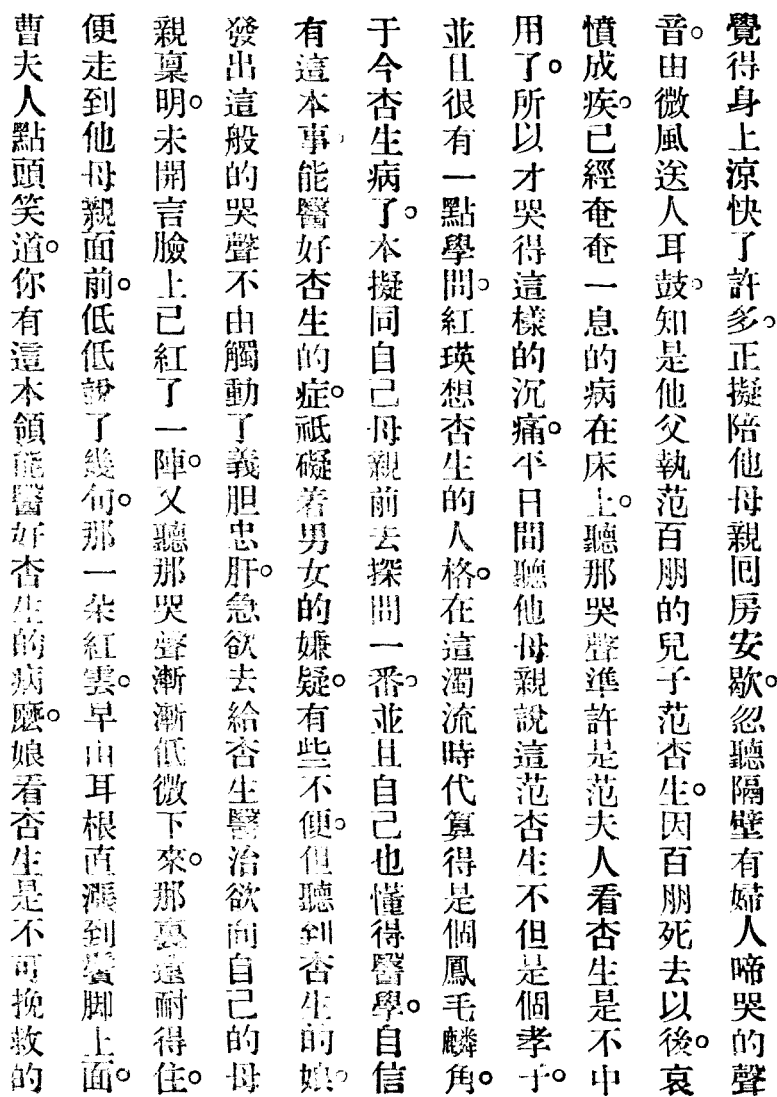 覺得身上涼快了許多。正擬陪他母親囘房安歇。忽聽隔壁有婦人啼哭的聲
音。由微風送人耳鼓。知是他父執范百朋的兒子范杏生。因百朋死去以後。哀
憤成疾。已經奄奄一息的病在床上。聽那哭聲準許是范夫人看杏生是不中
用了。所以才哭得這樣的沉痛。平日間聽他母親說這范杏生不但是個孝子。
並且很有一點學問。紅瑛想杏生的人格。在這濁流時代算得是個鳳毛麟角。
于今杏生病了。本擬同自己母親前去探問一番。並且自己也懂得醫學。自信
有這本事，能醫好杏生的症。祗礙着男女的嫌疑。有些不便。但聽到杏生的娘。
發出這般的哭聲不由觸動了義胆忠肝。急欲去給杏生醫治欲向自己的母
親稟明。未開言臉上已紅了一陣。又聽那哭聲漸漸低微下來。那裏還耐得住。
便走到他母親面前。低低說了幾句。那一朵紅雲。早由耳根直漲到鬢脚上面。
曹夫人點頭笑道。你有這本領能醫好杏生的病麼。娘看杏生是不可挽救的